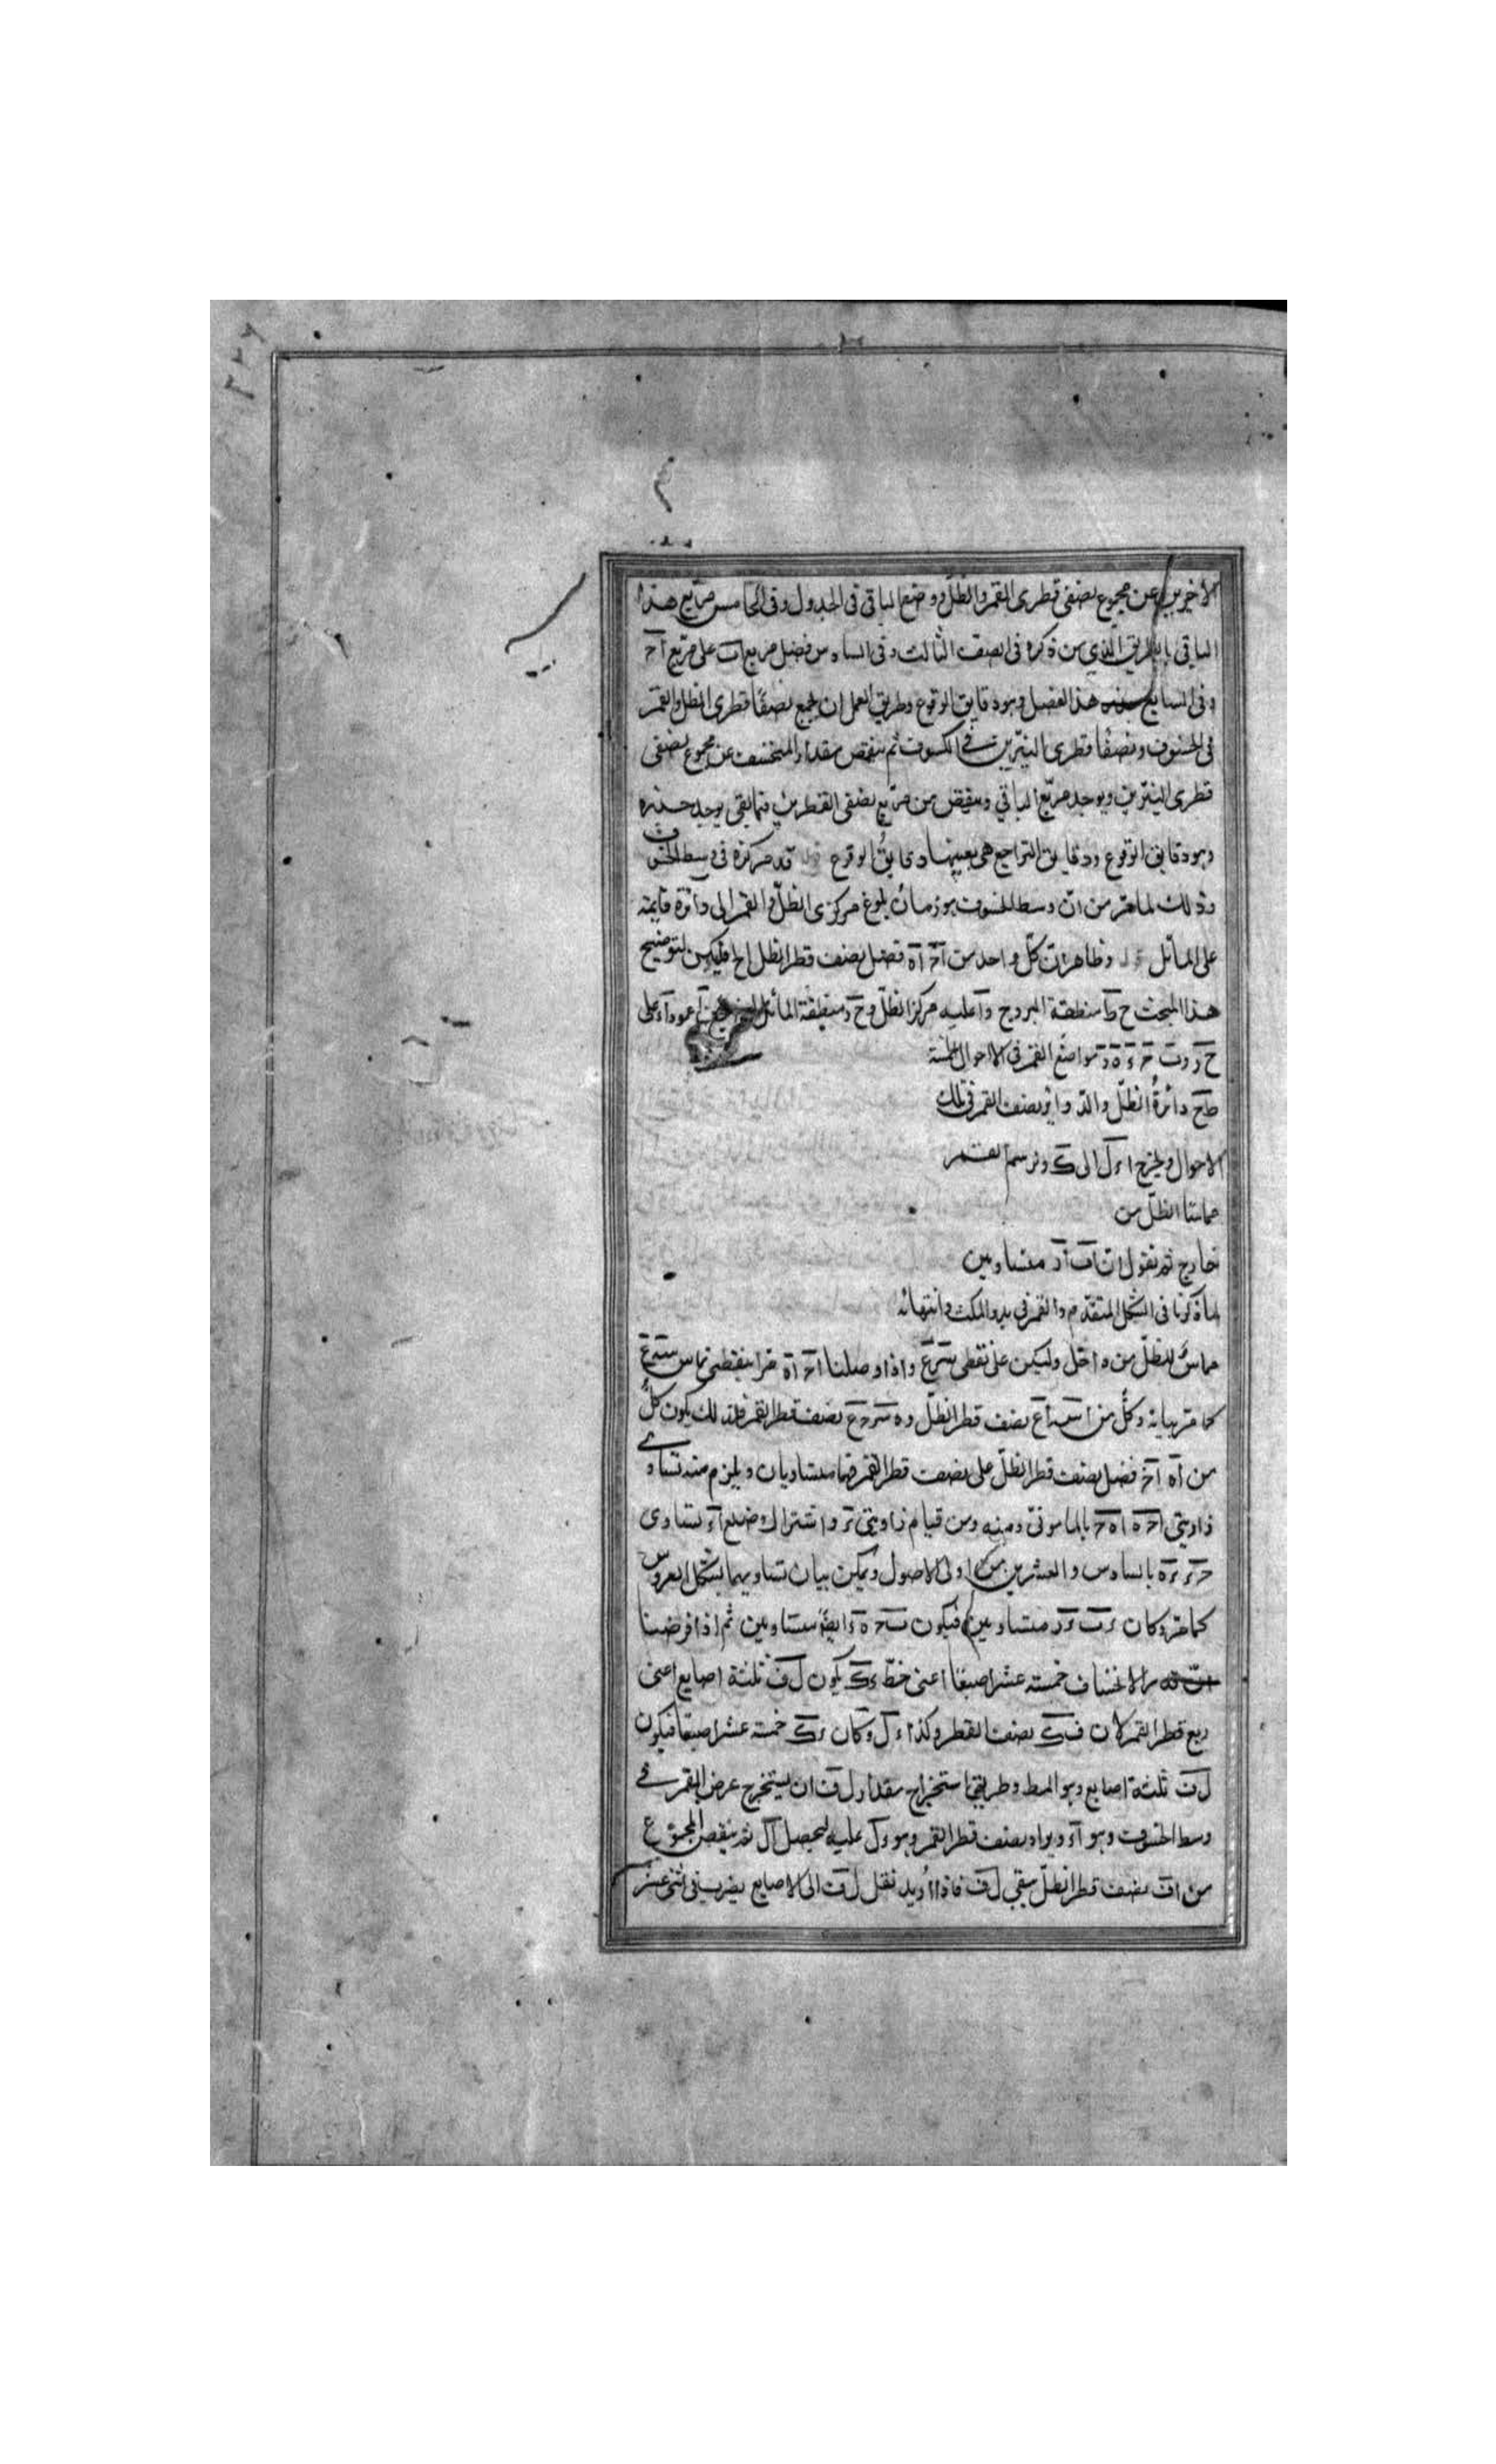 الاخيرين عن مجموع نصفى قطرى القمر والظل ووضع الباقى فى الجدول وفى الخامس مربع هذا
الباقى بالطريق الذي من ذكره فى الصف الثالث وفى السادس فضل مربع اب على مربع اح
وفى السابع جذر هذا الفضل وهو دقايق الوقوع وطريق العمل ان يجمع نصفا قطرى الظل والقمر
فى الخسوف ونصفا قطرى النيرين فى الكسوف ثم ينقص مقدار المنخسف عن مجموع نصفى
قطرى النيرين ويوجد مربع الباقي وينقص من مربع نصفى القطرين فما بقى يوجد جذره
وهو دقايق الوقوع ودقايق التراجع هى بعينها دقايق الوقوع قد مركزه فى وسط الخسوف
وذلك لما مر من ان وسط الخسوف هو زمان بلوغ مركزى الظل والقمر الى دائرة قايمة
على المائل وظاهر ان كل واحد من اح اه فضل نصف قطر الظل الخ فليكن لتوضيح
هذا المبحث ح ط منطقة البروج وا عليه مركز الظل و ح د منطقة المائل عمودا على
ح د مواضع القمر فى الاحوال الخمسة
دائرة الظل والدوائر نصف القمر فى تلك
الاحوال ويخرج ا ء ل الى ك ونرسم القمر
مماسا الظل من
خارج ثم نقول ان اب اد متساويين
لما ذكرنا فى الشكل المتقدم والقمر فى بدو المكث وانتهائه
مماس للظل من داخل وليكن على نقطتى س ع واذا وصلنا اح اه مرا بنقطتى تماس س ع
كما مر بيانه وكل من اس اع نصف قطر الظل و ه س ح ع نصف قطر القمر فلذلك يكون كل
من اه اح فضل نصف قطر الظل على نصف قطر القمر فهما متساويان ويلزم منه تساوى
زاويتى اح ه اه ح بالمامونى ومنه ومن قيام زاويتى ء واشتراك ضلع اء تساوى
ح ء ء ه بالسادس والعشرين من اولى الاصول ويمكن بيان تساويهما بشكل العروس
كما مر وكان ء ب ء د متساويين فيكون ب ح ه د ايضا متساويين ثم اذا فرضنا
الانخساف خمسة عشر اصبعا اعنى خط ء ك يكون ل ف ثلثة اصابع اعنى
ربع قطر القمر لان ف ك نصف القطر وكذا ء ل وكان ء ك خمسة عشر اصبعا فيكون
ل ف ثلثة اصابع وهو المط وطريق استخراج مقدار ل ف ان يستخرج عرض القمر فى
وسط الخسوف وهو اء ويزاد نصف قطر القمر وهو ء ل عليه ليحصل ال ثم ينقص المجموع
من اف نصف قطر الظل يبقى ل ف فاذا اريد نقل ل ف الى الاصابع يضرب فى اثنى عشر